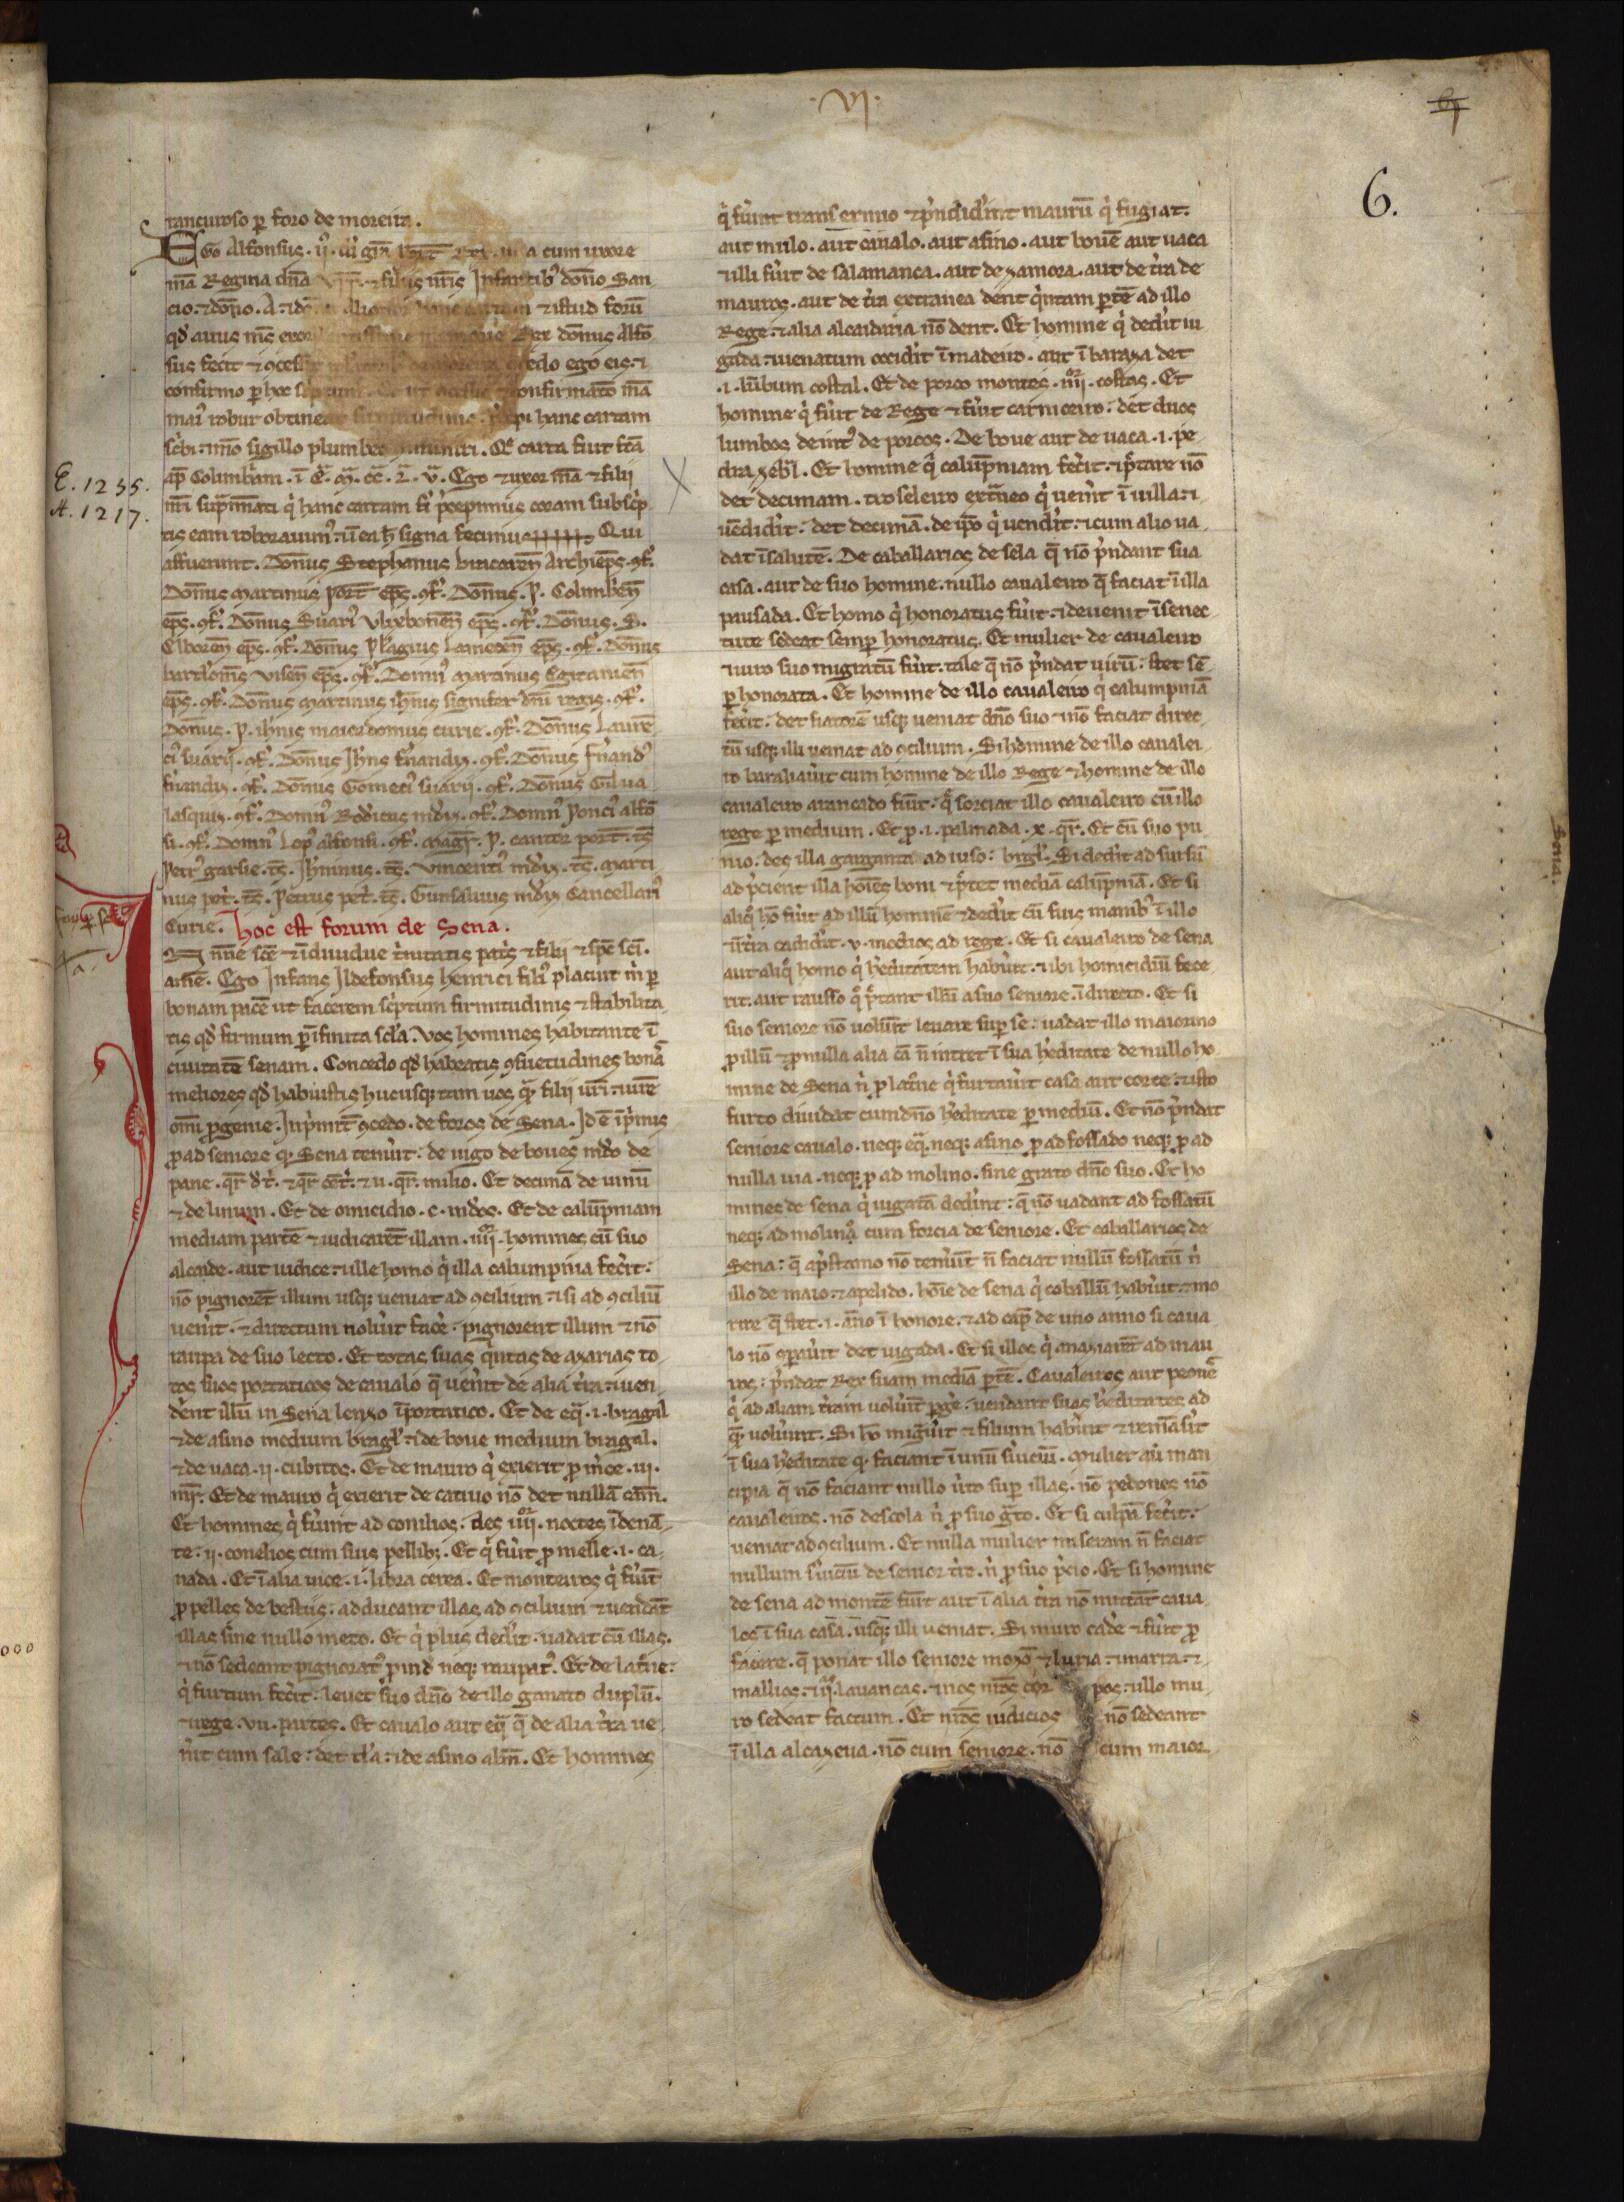 ·VI·
6.
trancuroso per foro de moreira.
EGo Alfonsus. ij. dei gra Port Rex. una cum uxore
mea Regina dna filiis nris Infantibus dono San
cio. et dono. A. et istud foru
qd auus ms Rex domnus Alfo
sus fecit et ɔcessit ɔcedo ego eis. et
confirmo per hoc scriptum. confirmatio mea
mai robur obtineat precepi hanc cartam
scbi. et meo sigillo plumbeo muniri. Que carta fuit fca
E. 1255.
A. 1217.
ap Colimbriam. i E. M. cc. L. v. Ego et uxor mea et filii
nri supranoiati qi hanc cartam fi precepimus coram subscrip
tis eam roborauim. et in ea h signa fecimus. Qui
affuerunt. Domnus Stephanus bracaren Archieps. ɔf.
Domnus Martinus Port eps. ɔf. Domnus. P. Colimbrien
eps. ɔf. Domnus Suari Ulixbonen eps. ɔf. Domnus. S.
Elboren eps. ɔf. domnus Pelagius Lamecen eps. ɔf. domnus
bartolomeus Visen eps. ɔf. Domnus Martinus Egitanien
eps. ɔf. Domnus Martinus ihnis signifer dni regis. ɔf.
Domnus. P. ihnis maiordomus curie. ɔf. Domnus Laure
ci suarij. ɔf. Domnus Ihns fernandi. ɔf. Domnus Fernand
fernandi. ɔf. Domnus Gomeci suarij. ɔf. Domnus Gil ua
lasquis. ɔf. Domn Rodericus mdis. ɔf. Domn Ponci alfo
si. ɔf. Domn Lop alfonsi. ɔf. Magr. P. cantor port. ts
Petr garsie. ts. Ihninus. ts. Vincenti mdis. ts. Marti
nus petri. ts. Petrus petri. ts. Gunsaluus mdis Cancellari
Curie. Hoc est forum de Sena.
In nne sce et indiuidue trinitatis patris et filii et spe sci.
ame. Ego Infans Ildefonsus henrici fili placuit m per
bonam pace ut facerem scriptum firmitudinis et stabilita
tis qd firmum per infinita scla. Vos homines habitante i
ciuitate senam. Concedo qd habeatis ɔsuetudines bona
meliores qd habuistis hucusqz tam uos qm filii uri. et ure
omni progenie. Inprimit ɔcedo. de foros de Sena. Id e iprimis
pro ad seniore q Sena tenuit. de iugo de boues mdo de
pane. qr dt. et qr cet. et u. qr. milio. Et decima de uinu
et de linum. Et de omicidio. c. mdos. Et de calupniam
mediam parte et iudicaret illam. iiij. homines cu suo
alcaide. aut iudice. et ille homo qi illa calumpnia fecit.
no pignoret illum usqz ueniat ad ɔcilium. et si ad ɔciliu
uenit. et directum noluit facere. pignorent illum et no
raupa de suo lecto. Et totas suas quintas de axarias to
tos suos portaticos de caualo q uenit de alia tra. et uen
dent illu in Sena lenso i portatico. Et de eq. i. bragal
et de asino medium bragl. et de boue medium bragal.
et de uaca. ij. cubitos. Et de mauro qi exierit pro mce. iij.
mr. Et de mauro qi exierit de catiuo no det nulla cam.
Et homines qi fuint ad conilios. des iiij. noctes i dena
te. ij. conelios cum suis pellibz. Et qi fuit pro melle. i. ca
nada. Et i alia uice. i. libra cerea. Et monteiros qi fuint
pro pelles de bestiis. adducant illas ad ɔcilium et uendat
illas sine nullo meto. Et qi plus dedit. uadat cu illas.
et no sedeant pignorat pind neqz raupat. Et de latrone.
qi furtum fecit. leuet suo dno de illo ganato duplu.
et rege. vii. partes. Et caualo aut eq q de alia tra ue
nit cum sale. det tla. et de asino alm. Et homines
q fuint trans ermo et prendidint mauru qi fugiat.
aut mulo. aut caualo. aut asino. aut boue aut uaca
et illi fuit de salamanca. aut de zamora. aut de tra de
mauros. aut de tra extranea dent quintam parte ad illo
Rege. et alia alcaidaria no dent. Et homine qi dedit iu
gada. et uenatum occidit i madeiro. aut i baraza det
.i. lumbum costal. Et de porco montes. iiij. costas. Et
homine qi fuit de Rege et fuit carniceiro. det duos
lumbos de intro de porcos. De boue aut de uaca. i. pe
dra zebl. Et homine qi calupniam fecit. et pretare no
det decimam. troseleiro extraneo qi uenit i uilla. et
uendidit. det decima. de ipso qi uendit. et cum alio ua
dat i salute. De caballarios de sela q no prendant sua
casa. aut de suo homine. nullo caualeiro q faciat i illa
pausada. Et homo qi honoratus fuit. et deuenit i senec
tute sedeat semper honoratus. Et mulier de caualeiro
et uiro suo migratu fuit. tale q no prendat uiru. stet se
per honorata. Et homine de illo caualeiro qi calumpnia
fecit. det fiatore usqz ueniat dno suo et no faciat direc
tu usqz illi ueniat ad ɔcilium. Si homine de illo caualei
ro baraliauit cum homine de illo Rege et homine de illo
caualeiro arancado fuit. q sorciat illo caualeiro cu illo
rege per medium. Et pro. i. palmada. x. qr. Et cu suo pu
no. des illa garganta ad iuso. bragl. Si dedit ad sursu
ad precient illa hoies boni et pretet media calupnia. Et si
aliq ho fuit ad illu homine et dedit cu suis manib i illo
et i tra cadidit. v. modios ad rege. Et si caualeiro de sena
aut aliq homo qi hereditatem habuit. et ibi homicidiu fece
rit. aut rausso q pretant illu a suo seniore. i directo. Et si
suo seniore no uoluit leuare super se. uadat illo maiorino
pro illu et pro nulla alia ca n intret i sua hereditate de nullo ho
mine de Sena ni pro latrone qi furtauit casa aut corte. et isto
furto diuidat cum dno hereditate per mediu. Et no prendat
seniore caualo. neqz eq. neqz asino pro ad fossado neqz pro ad
nulla uia. neqz pro ad molino. sine grato dno suo. Et ho
mines de sena qi iugata dedint. q no uadant ad fossatu
neqz ad molino cum forcia de seniore. Et caballarios de
Sena. q aprestamo no tenuit n faciat nullu fossatu ni
illo de maio. et apelido. hoie de sena qi caballu habuit. et mo
rire q stet. i. anno i honore. et ad cap de uno anno si caua
lo no ɔparuit det iugada. Et si illos qi anaziaret ad mau
ros. prendat Rex suam media parte. Caualeiros aut peone
qi ad aliam tram uoluit pge. uendant suas hereditates ad
q uoluint. Si ho migrauit et filium habuit et remasit
i sua hereditate q. faciant i unu seruiciu. Mulier aut man
cipia q no faciant nullo uirto super illas. no pedones no
caualeiros. no descola ni pro suo grato. Et si culpa fecit.
ueniat ad ɔcilium. Et nulla mulier miseram n faciat
nullum seruiciu de senior tre. ni pro suo precio. Et si homine
de sena ad monte fuit aut i alia tra no mittat caua
los i sua casa. usqz illi ueniat. Si muro cade et fuit pro
facere. q ponat illo seniore mozo et lupia. et marra. et
mallios. et iiij. lauancas. et nos nros cor pos. et illo mu
ro sedeat factum. Et nros iudicios no sedeant
i illa alcazeua. no cum seniore. no cum maior
Sena.